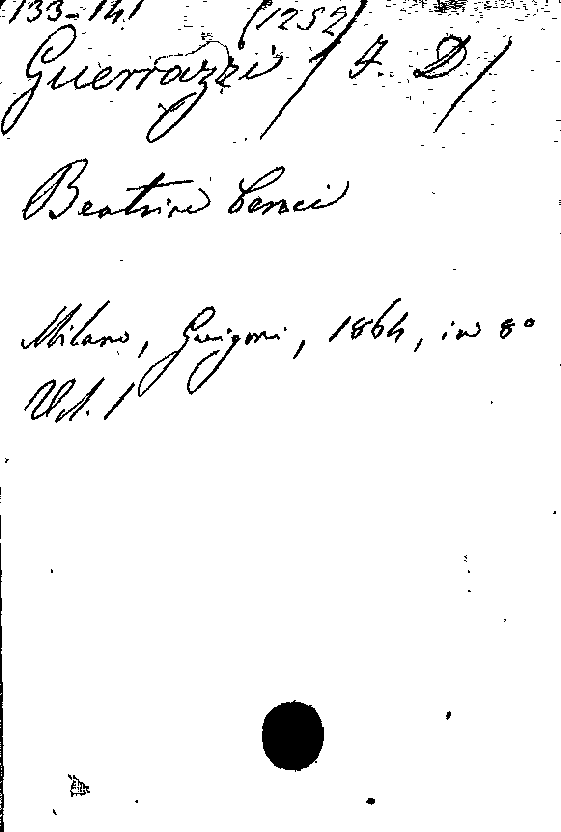 133-141 (1252)
Guerrazzi / F. D /
Beatrice Cenci
Milano, Guigoni, 1864, in 8°
Vol. 1